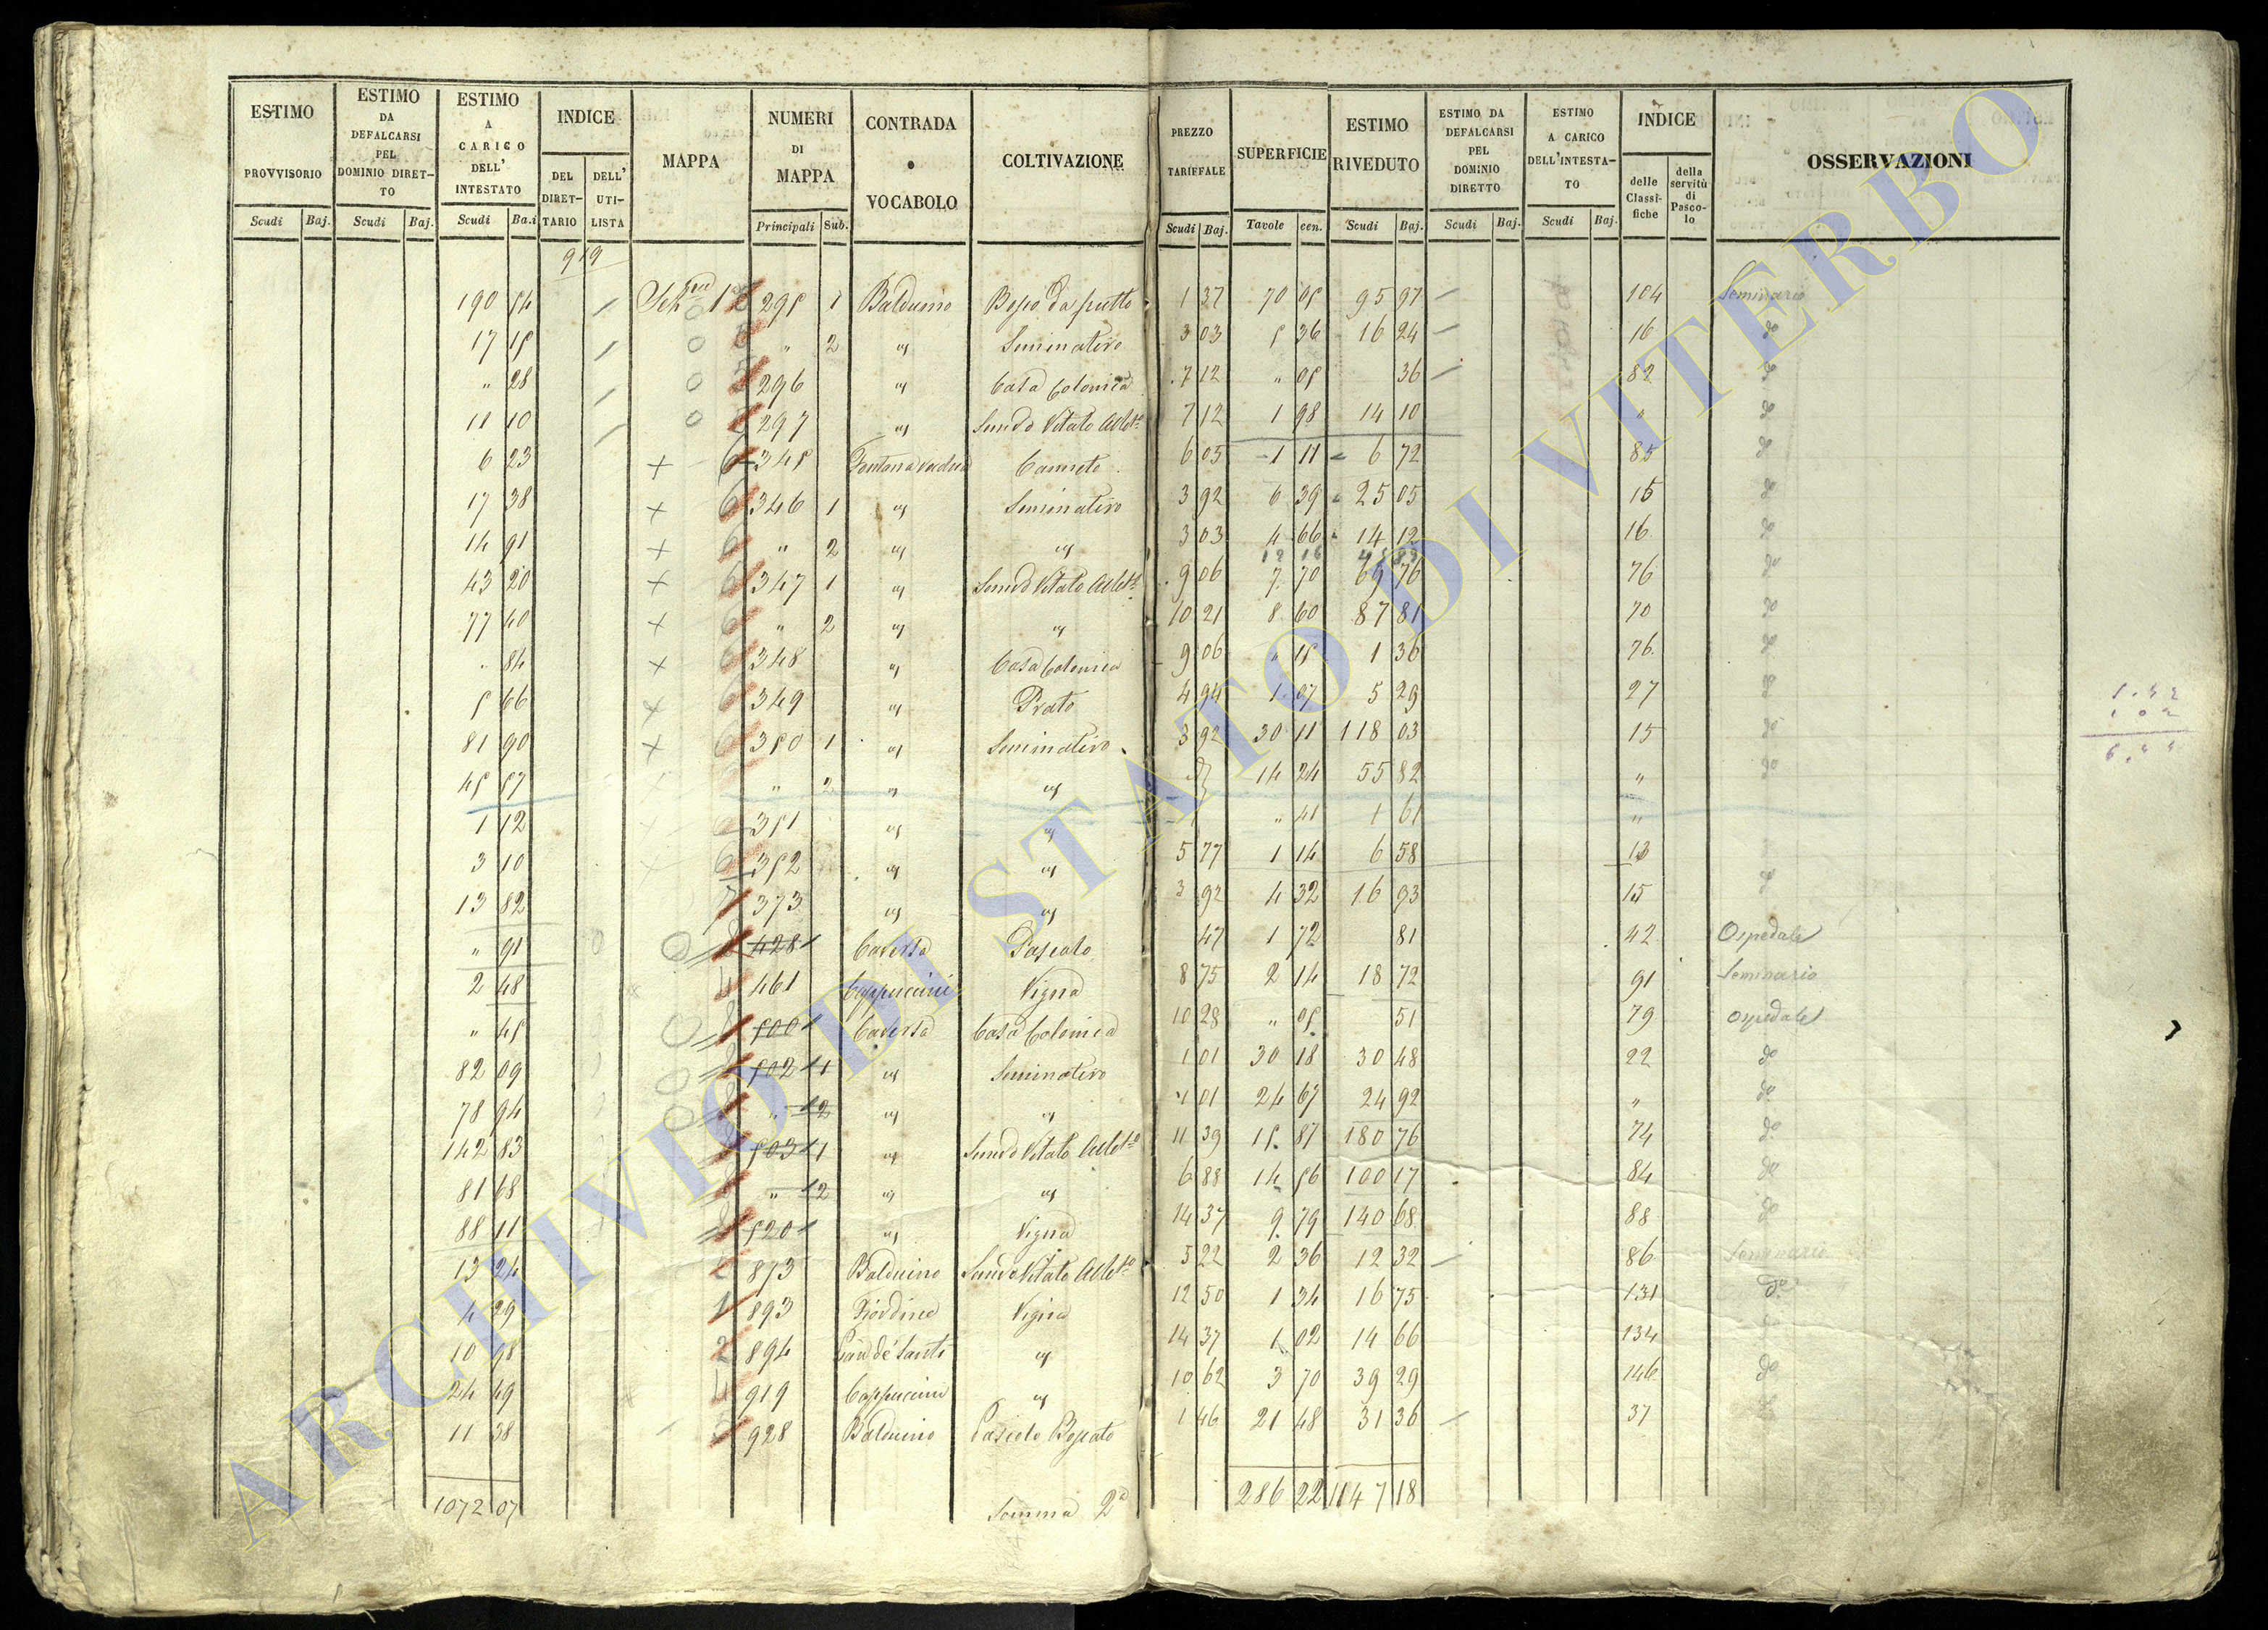 ESTIMO PROVVISORIO
ESTIMO DA DEFALCARSI PEL DOMINIO DIRETTO
ESTIMO A CARICO DELL' INTESTATO
INDICE
DEL DIRETTARIO
DELL' UTILISTA
MAPPA
NUMERI DI MAPPA
CONTRADA O VOCABOLO
COLTIVAZIONE
PREZZO TARIFFALE
SUPERFICIE
ESTIMO RIVEDUTO
ESTIMO DA DEFALCARSI PEL DOMINIO DIRETTO
ESTIMO A CARICO DELL'INTESTATO
INDICE
delle Classifiche
della servitù di Pascolo
OSSERVAZIONI
Scudi Baj. Scudi Baj. Scudi Baj. Principali Sub. Scudi Baj. Tavole cen. Scudi Baj. Scudi Baj. Scudi Baj.
919
190 54 295 1 Balduino Bosco da frutto 1 37 70 05 95 97 104 Seminario
17 15 " 2 " Seminativo 3 03 5 36 16 24 16 do
" 28 296 " Casa Colonica 7 12 " 05 36 82 do
11 10 297 " Semvo Vitato Albto 7 12 1 98 14 10 " do
6 23 345 Canneto 6 05 1 11 6 72 85 do
17 38 346 1 " Seminativo 3 92 6 39 25 05 15 do
14 91 " 2 " " 3 03 4 66 14 12 16 do
43 20 347 1 " Semvo Vitato Albto 9 06 7 70 69 76 76 do
77 40 " 2 " " 10 21 8 60 87 81 70 do
" 84 348 " Casa Colonica 9 06 " 15 1 36 76 do
5 66 349 " Prato 4 94 1 07 5 29 27 do
81 90 350 1 " Seminativo 3 92 30 11 118 03 15 do
45 57 " 2 " " 14 24 55 82 " do
1 12 351 " " " 41 1 61 "
3 10 352 " " 5 77 1 14 6 58 13
13 82 373 " " 3 92 4 32 16 93 15 do
" 91 428 Caversa Pascolo 47 1 72 81 42 Ospedale
2 48 461 Cappuccini Vigna 8 75 2 14 18 72 91 Seminario
" 45 500 Caversa Casa Colonica 10 28 " 05 51 79 Ospedale
82 09 502 1 " Seminativo 1 01 30 18 30 48 22 do
78 94 " 2 " " 1 01 24 67 24 92 " do
142 83 503 1 " Semvo Vitato Albto 11 39 15 87 180 76 74 do
81 68 " 2 " " 6 88 14 56 100 17 84 do
88 11 520 " Vigna 14 37 9 79 140 68 88 do
13 24 873 Balduino Semvo Vitato Albto 5 22 2 36 12 32 86 Seminario
4 29 893 Vigna 12 50 1 34 16 75 131 do
10 98 894 " 14 37 1 02 14 66 134
24 49 919 Cappuccini " 10 62 3 70 39 29 146 do
11 38 928 Balduino Pascolo Boscato 1 46 21 48 31 36 37
1072 07 Somma 2a 286 22 1147 18
ARCHIVIO DI STATO DI VITERBO